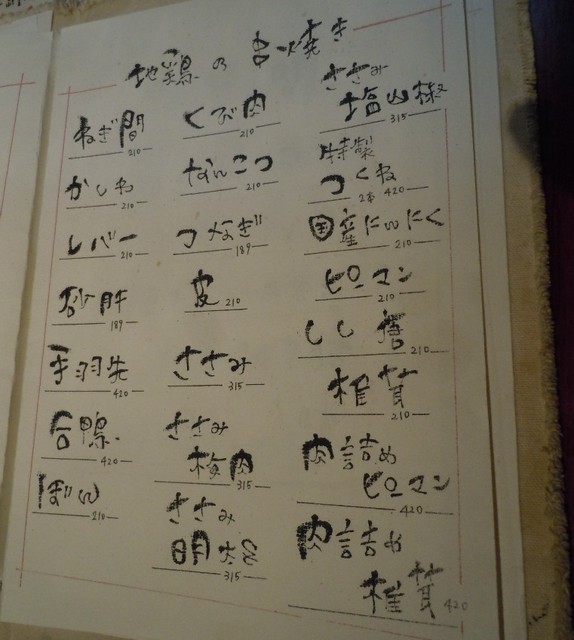 地鶏の串焼き
ねぎ間
210
かしわ
210
レバー
210
砂肝
189
手羽先
420
合鴨
420
ぼん
210
くび肉
210
なんこつ
210
つなぎ
189
皮 210
ささみ
315
ささみ
梅肉
315
ささみ
明太
315
ささみ
塩山椒
315
特製
つくね
2本 420
国産にんにく
210
ピーマン
210
しし唐
210
椎茸
210
肉詰め
ピーマン
420
肉詰め
椎茸 420